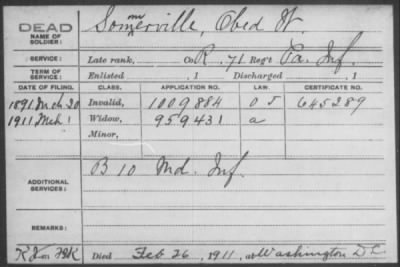 DEAD
NAME OF SOLDIER: Somerville, Obed W.
SERVICE: Late rank, Co. R. 71 Reg't Pa. Inf.
TERM OF SERVICE: Enlisted , 1 Discharged , 1
DATE OF FILING. CLASS. APPLICATION NO. LAW. CERTIFICATE NO.
1891 Mch 20 Invalid, 1009884 O J 645289
1911 Mch 1 Widow, 959431 a
Minor,
ADDITIONAL SERVICES: B 10 Md. Inf.
REMARKS:
Died Feb 26, 1911, at Washington D C